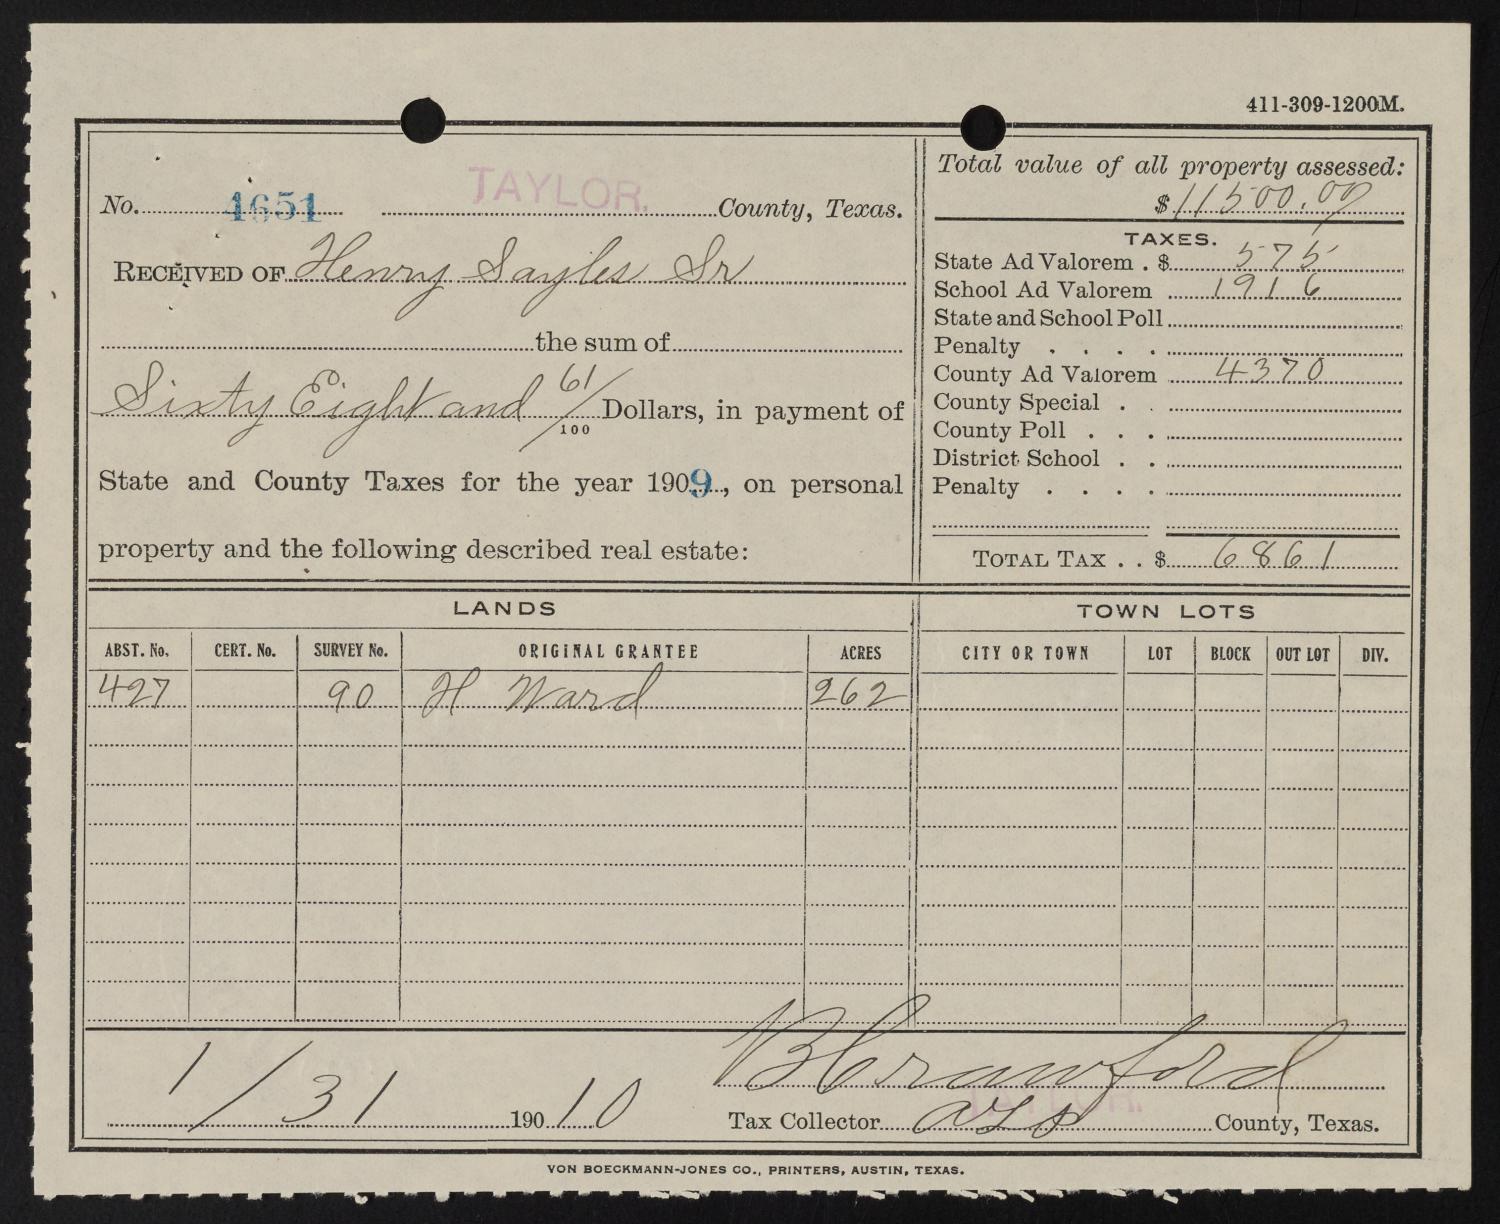 411-309-1200M.
No. 4651 TAYLOR. County, Texas.
RECEIVED OF Henry Sayles Sr
the sum of
Sixty Eight and 61/100 Dollars, in payment of
State and County Taxes for the year 1909, on personal
property and the following described real estate:
Total value of all property assessed:
$ 11500.00
TAXES.
State Ad Valorem . $ 575
School Ad Valorem 1916
State and School Poll
Penalty . . . .
County Ad Valorem 4370
County Special . .
County Poll . . .
District School . .
Penalty . . . .
TOTAL TAX . . $ 6861
LANDS
ABST. No. CERT. No. SURVEY No. ORIGINAL GRANTEE ACRES
427 90 H Ward 262
TOWN LOTS
CITY OR TOWN LOT BLOCK OUT LOT DIV.
1/31 190 10
Crawford
Tax Collector TAYLOR. County, Texas.
VON BOECKMANN-JONES CO., PRINTERS, AUSTIN, TEXAS.